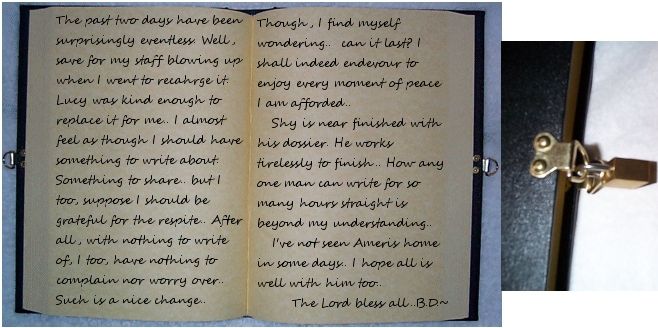 The past two days have been
surprisingly eventless. Well,
save for my staff blowing up
when I went to recahrge it.
Lucy was kind enough to
replace it for me.. I almost
feel as though I should have
something to write about.
Something to share.. but I
too, suppose I should be
grateful for the respite.. After
all, with nothing to write
of, I too, have nothing to
complain nor worry over..
Such is a nice change..
Though, I find myself
wondering.. can it last? I
shall indeed endevour to
enjoy every moment of peace
I am afforded..
Shy is near finished with
his dossier. He works
tirelessly to finish.. How any
one man can write for so
many hours straight is
beyond my understanding..
I've not seen Ameris home
in some days.. I hope all is
well with him too..
The Lord bless all..B.D.~